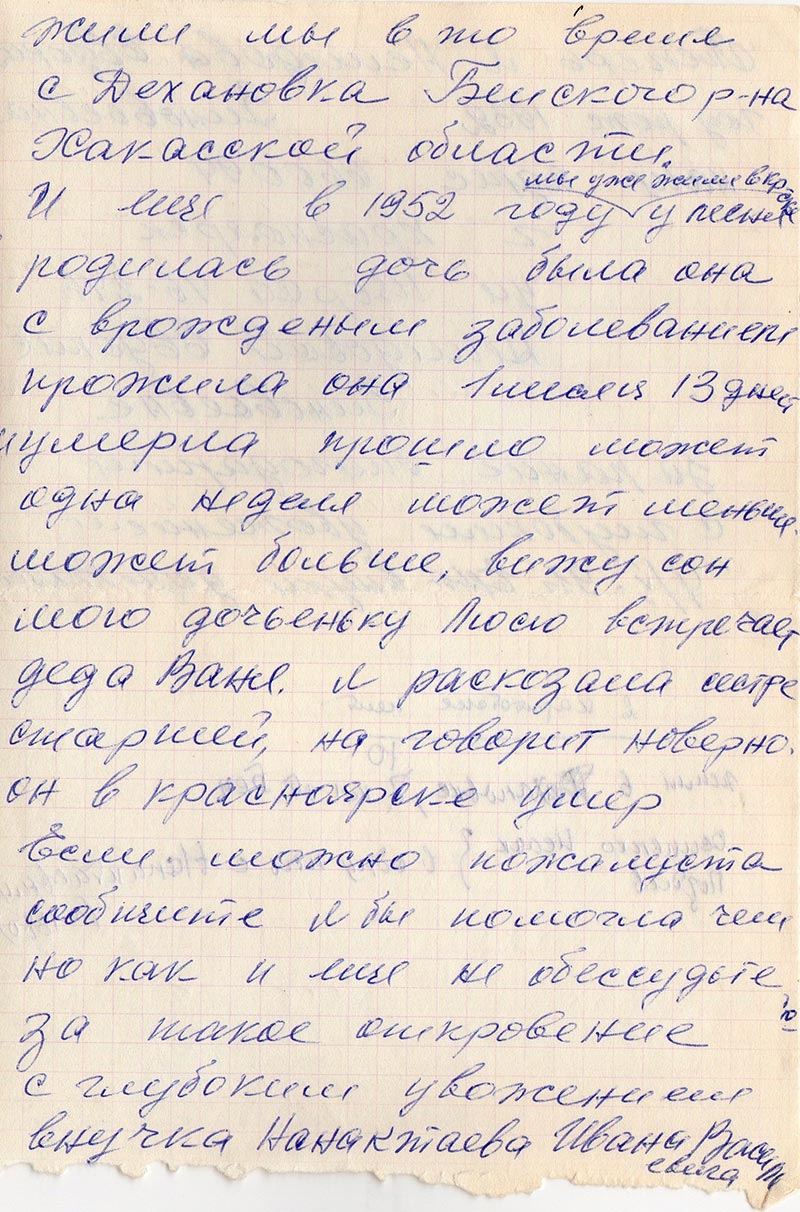 жили мы в то время
с Дехановка Бейского р-на
Хакасской области.
мы уже жили в кр-ске
И еще в 1952 году у меня
родилась дочь была она
с врожденым заболеванием
прожила она 1 месяц 13 дней
и умерла прошло может
одна неделя может меньше
может больше, вижу сон
мою дочьеньку Люсю встречает
деда Ваня. я расказала сестре
старшей, на говорит наверно.
он в красноярске умер
Если можно пожалуста
сообчите я бы помогла чем
но как и еще не обессудьте
за такое откровение
с глубоким уважением
внучка Нанактаева Ивана Васи
евича